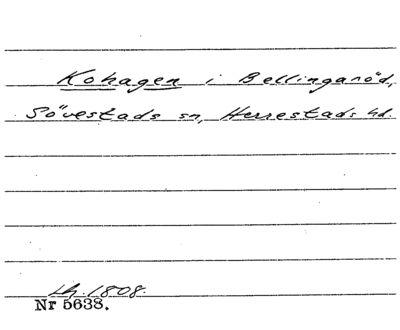 Kohagen i Bellingaröd,
Sövestads sn, Herrestads hd.
Lh. 1808.
Nr 5638.